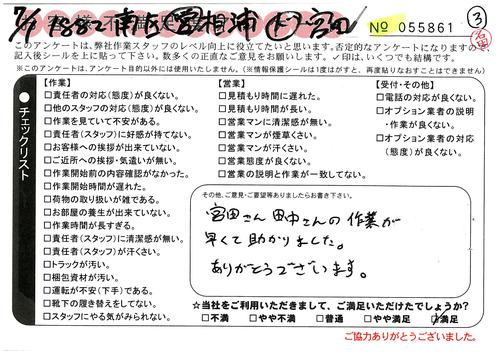 7/9 1882 南区 宮相浦 ト 宮田
№ 055861 ③
このアンケートは、弊社作業スタッフのレベル向上に役立てたいと思います。否定的なアンケートになりますので
記入後シールを上に貼って下さい。数多くの正直なご意見をお願いします。✓印は、いくつでも結構です。
※このアンケートは、アンケート目的以外には使用いたしません。(※情報保護シールは1度はがすと、再度貼りなおすことはできません)
●チェックリスト
【作業】
□責任者の対応(態度)が良くない。
□他のスタッフの対応(態度)が良くない。
□作業を見ていて不安がある。
□責任者(スタッフ)に好感が持てない。
□お客様への挨拶が出来ていない。
□ご近所への挨拶・気遣いが無い。
□作業開始前の内容確認がなかった。
□作業開始時間が遅れた。
□荷物の取り扱いが雑である。
□お部屋の養生が出来ていない。
□作業時間が長すぎる。
□責任者(スタッフ)に清潔感が無い。
□責任者(スタッフ)が汗くさい。
□トラックが汚い。
□梱包資材が汚い。
□運転が不安(下手)である。
□靴下の履き替えをしてない。
□スタッフにやる気がみられない。
【営業】
□見積もり時間に遅れた。
□見積もり時間が長い。
□営業マンに清潔感が無い。
□営業マンが煙草くさい。
□営業マンが汗くさい。
□営業態度が良くない。
□営業の説明と作業が一致してない。
【受付・その他】
□電話の対応が良くない。
□オプション業者の説明
・作業が良くない。
□オプション業者の対応
(態度)が良くない。
その他、ご意見・ご要望等ありましたらお書き下さい。
宮田さん 田中さんの作業が
早くて助かりました。
ありがとうございます。
☆当社をご利用いただきまして、ご満足いただけたでしょうか?
□不満 □やや不満 □普通 □やや満足 ☑満足
ご協力ありがとうございました。